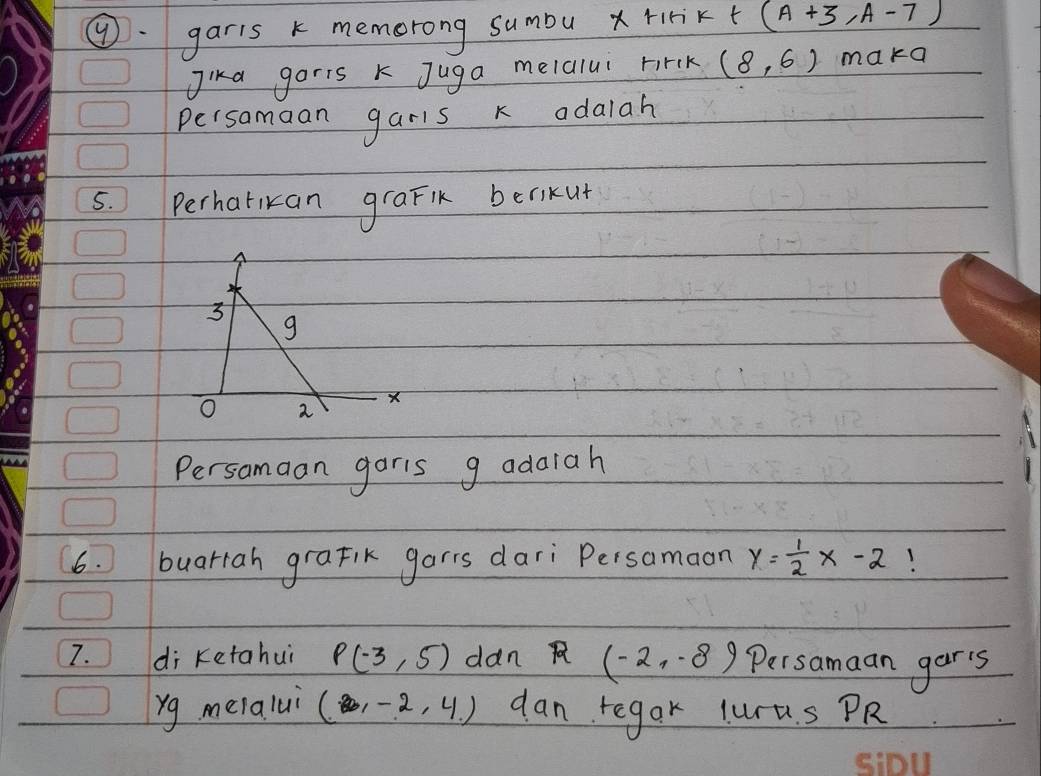 4. garis k memotong sumbu x titik t (A+3,A-7)
Jika garis k Juga melalui titik (8,6) maka
persamaan garis k adalah
5. Perhatikan grafik berikut
3
g
0 2 x
Persamaan garis g adalah
6. buatlah grafik garis dari Persamaan y = 1/2 x - 2 !
7. di ketahui P(-3,5) dan R (-2,-8) Persamaan garis
yg melalui (-2,4) dan tegak lurus PR
SiDU